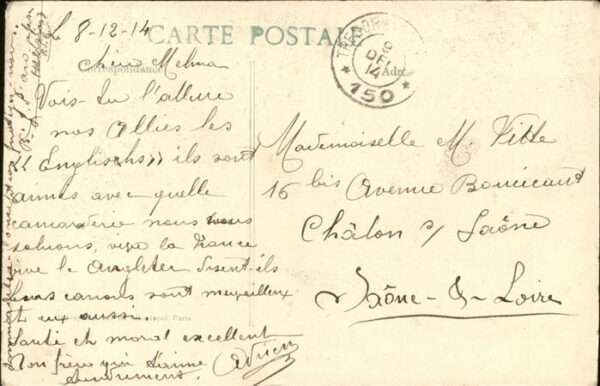 le 8-12-14
CARTE POSTALE
Correspondance
Adre
TRESOR
10
DEC
14
* 150 *
Chère Melma
Vois-tu l'allure
nos Alliés les
"Englischs" ils sont
aimés avec quelle
camaraderie nous nous
saluons, vive la France
vive le Angleter disent-ils
leurs canons sont merveilleux
et eux aussi.
Santé et moral excellent
Ton frère qui t'aime
tendrement.
Adrien
Mademoiselle M. Vitte
16 bis Avenue Boucicaut
Châlon s/ Saône
Saône-&-Loire
Paris